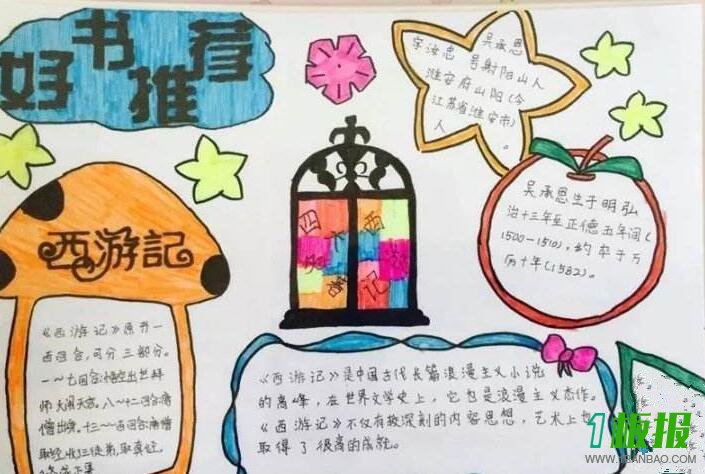 好书推荐
吴承恩
字汝忠 号射阳山人
淮安府山阳(今
江苏省淮安市)
人
吴承恩生于明弘
治十三年至正德五年间(
1500-1510),约卒于万
历十年(1582)。
四大
西游记
西游記
《西游记》原齐一
百回合,可分三部分。
一~七回合:悟空出世拜
师大闹天宫。八~十二回合
出世。十三~一百回合
取经 收三徒弟,取真经
《西游记》是中国古代长篇浪漫主义小说
的高峰,在世界文学史上,它也是浪漫主义杰作。
《西游记》不仅有较深刻的内容思想,艺术上也
取得了很高的成就。
1板报
WWW.1BANBAO.COM